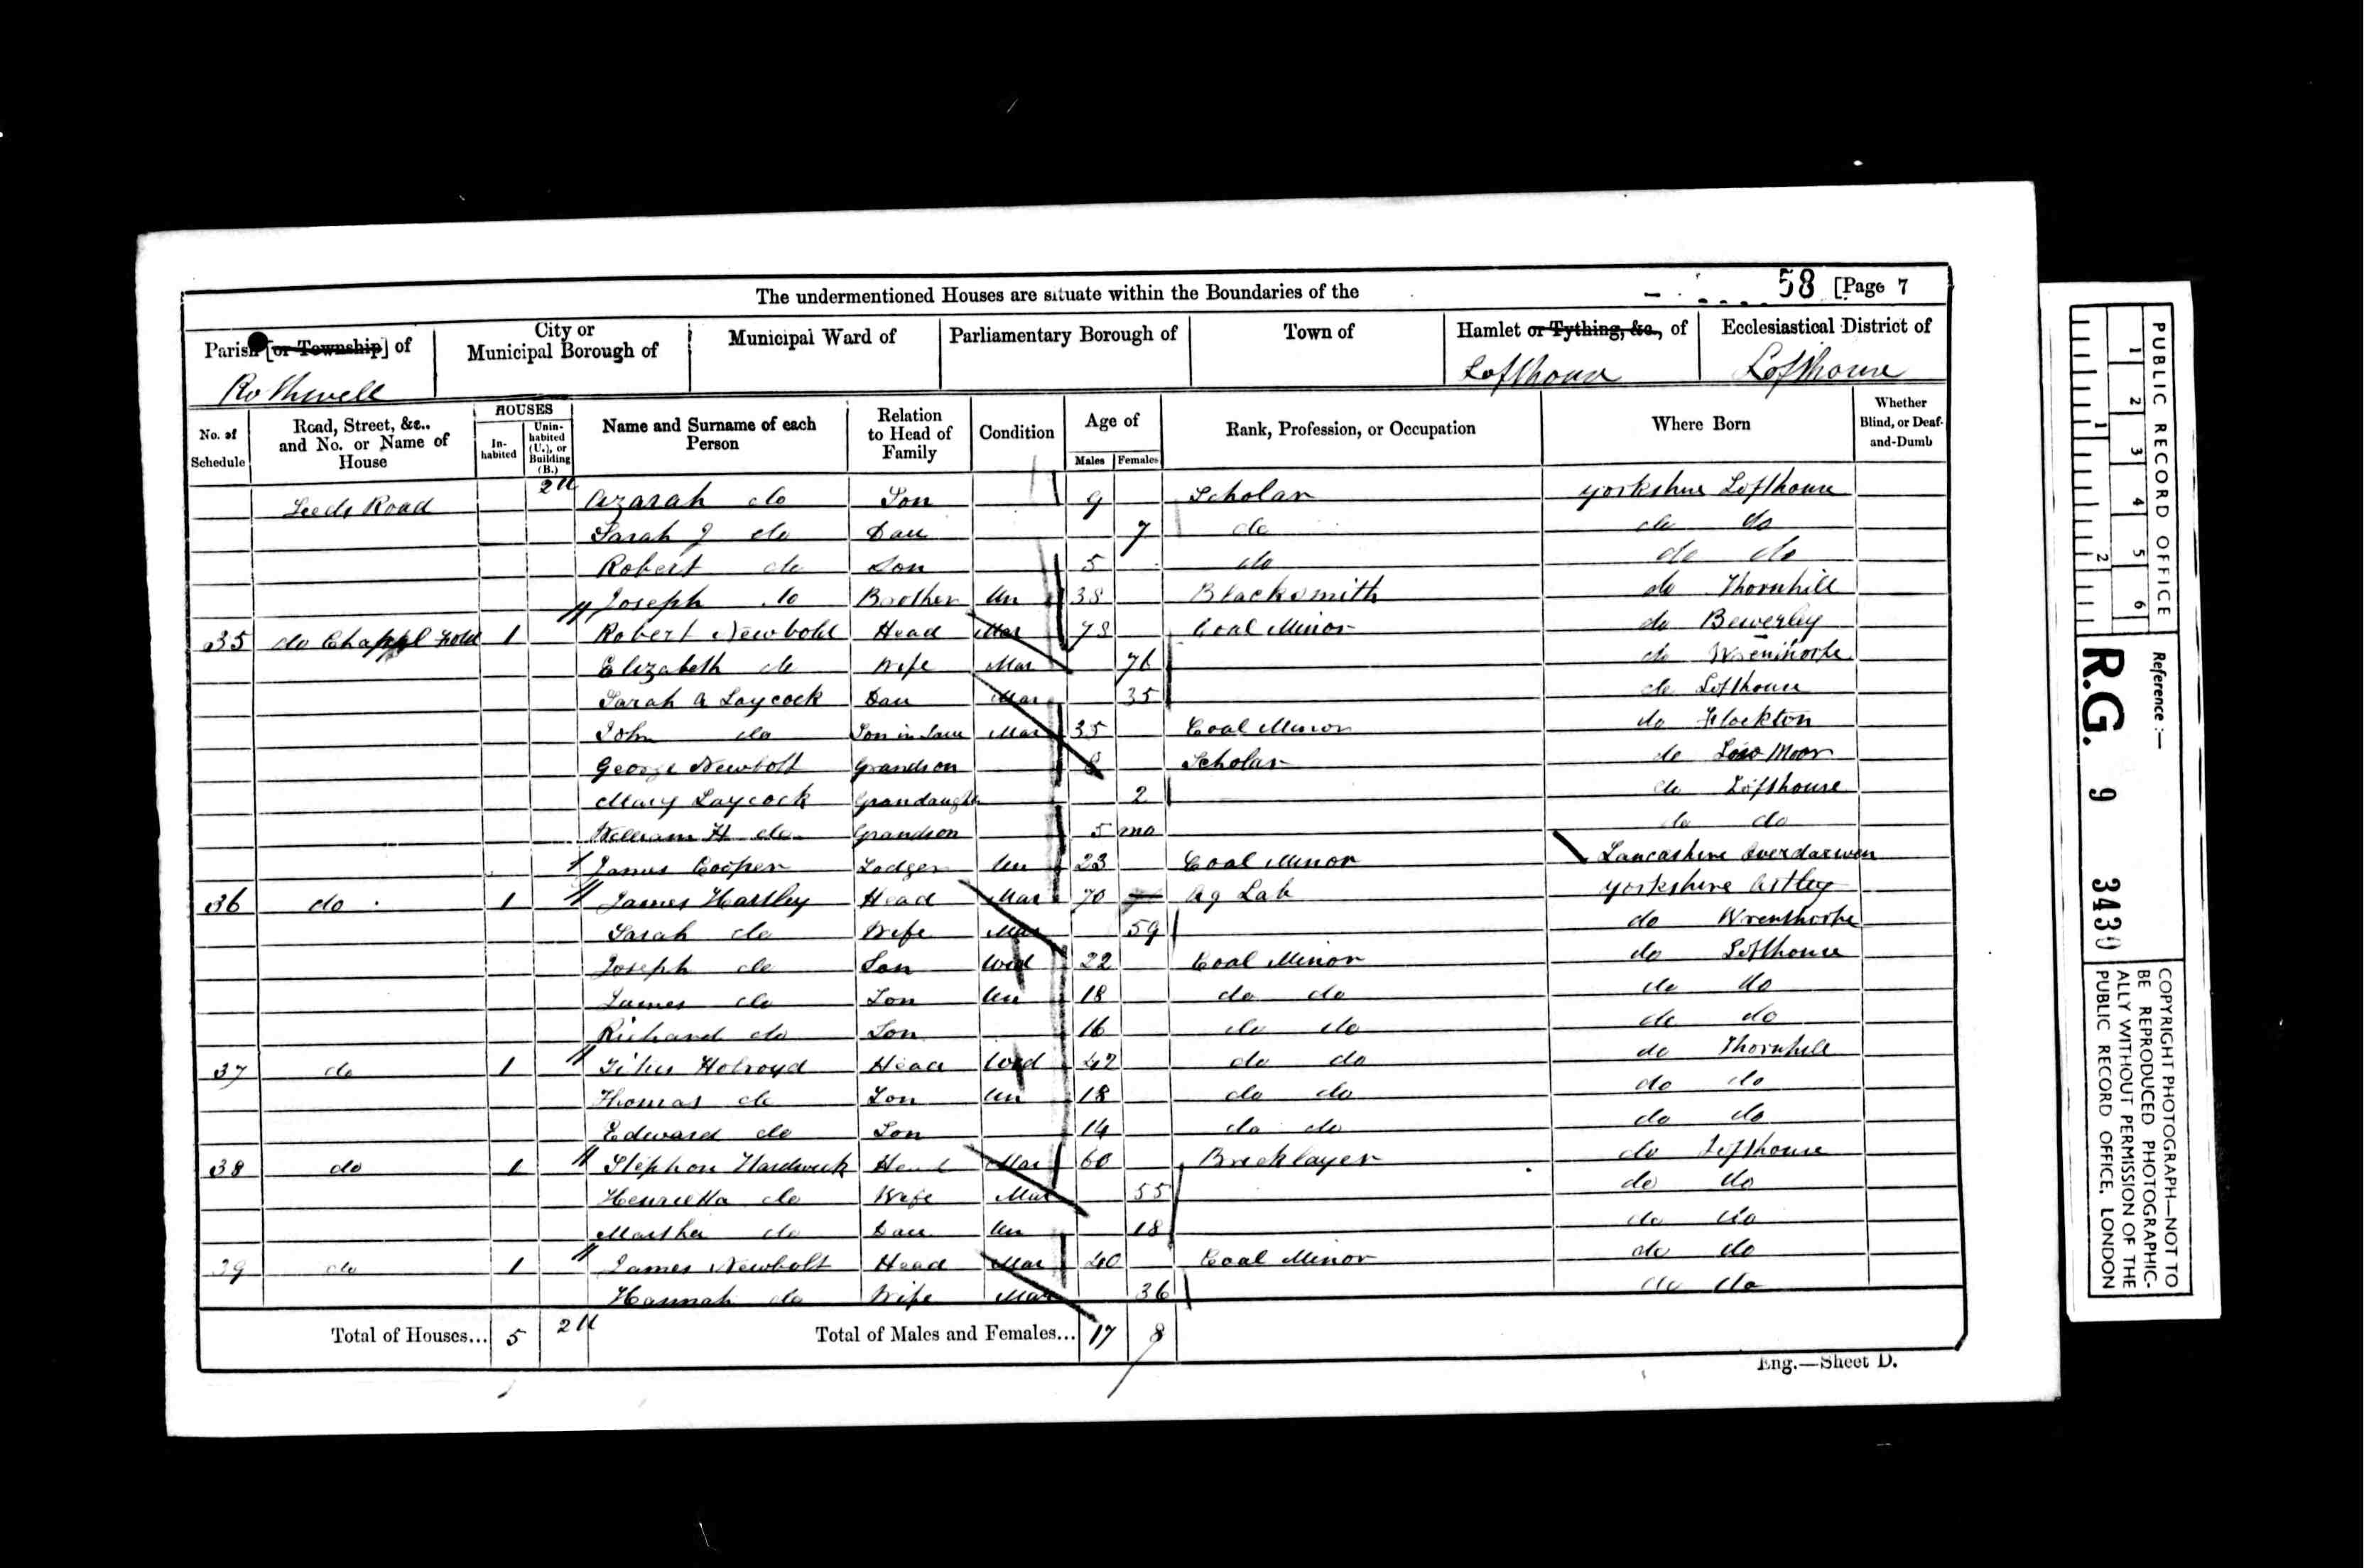 The undermentioned Houses are situate within the Boundaries of the 58 [Page 7
Parish [or Township] of City or Municipal Borough of Municipal Ward of Parliamentary Borough of Town of Hamlet or Tything, &c., of Ecclesiastical District of
Rothwell Lofthouse Lofthouse
No. of Schedule Road, Street, &c., and No. or Name of House HOUSES Inhabited Uninhabited (U.), or Building (B.) Name and Surname of each Person Relation to Head of Family Condition Age of Males Females Rank, Profession, or Occupation Where Born Whether Blind, or Deaf-and-Dumb
Leeds Road 2U Azarah do Son 9 Scholar Yorkshire Lofthouse
Sarah J do Dau 7 do do do
Robert do Son 5 do do do
Joseph do Brother Un 38 Blacksmith do Thornhill
35 do Chappl Fold 1 Robert Newbold Head Mar 78 Coal Minor do Bewerley
Elizabeth do Wife Mar 76 do Wrenthorpe
Sarah A Laycock Dau Mar 35 do Lofthouse
John do Son in Law Mar 35 Coal Minor do Flockton
George Newbolt Grandson 8 Scholar do Low Moor
Mary Laycock Grandaughter 2 do Lofthouse
William H do Grandson 5 mo do do
James Cooper Lodger Un 23 Coal Minor Lancashire Overdarwen
36 do 1 James Hartley Head Mar 70 Ag Lab Yorkshire Astley
Sarah do Wife Mar 59 do Wrenthorpe
Joseph do Son Wid 22 Coal Minor do Lofthouse
James do Son Un 18 do do do do
Richard do Son 16 do do do do
37 do 1 Titus Holroyd Head Wid 42 do do do Thornhill
Thomas do Son Un 18 do do do do
Edward do Son 14 do do do do
38 do 1 Stephen Hardwick Head Mar 60 Bricklayer do Lofthouse
Henrietta do Wife Mar 55 do do
Martha do Dau Un 18 do do
39 do 1 James Newbolt Head Mar 40 Coal Minor do do
Hannah do Wife Mar 36 do do
Total of Houses... 5 2U Total of Males and Females... 17 8
Eng.—Sheet D.
PUBLIC RECORD OFFICE
1 2 3 4 5 6
1 2
Reference :—
R.G. 9 3430
COPYRIGHT PHOTOGRAPH—NOT TO
BE REPRODUCED PHOTOGRAPHIC-
ALLY WITHOUT PERMISSION OF THE
PUBLIC RECORD OFFICE, LONDON